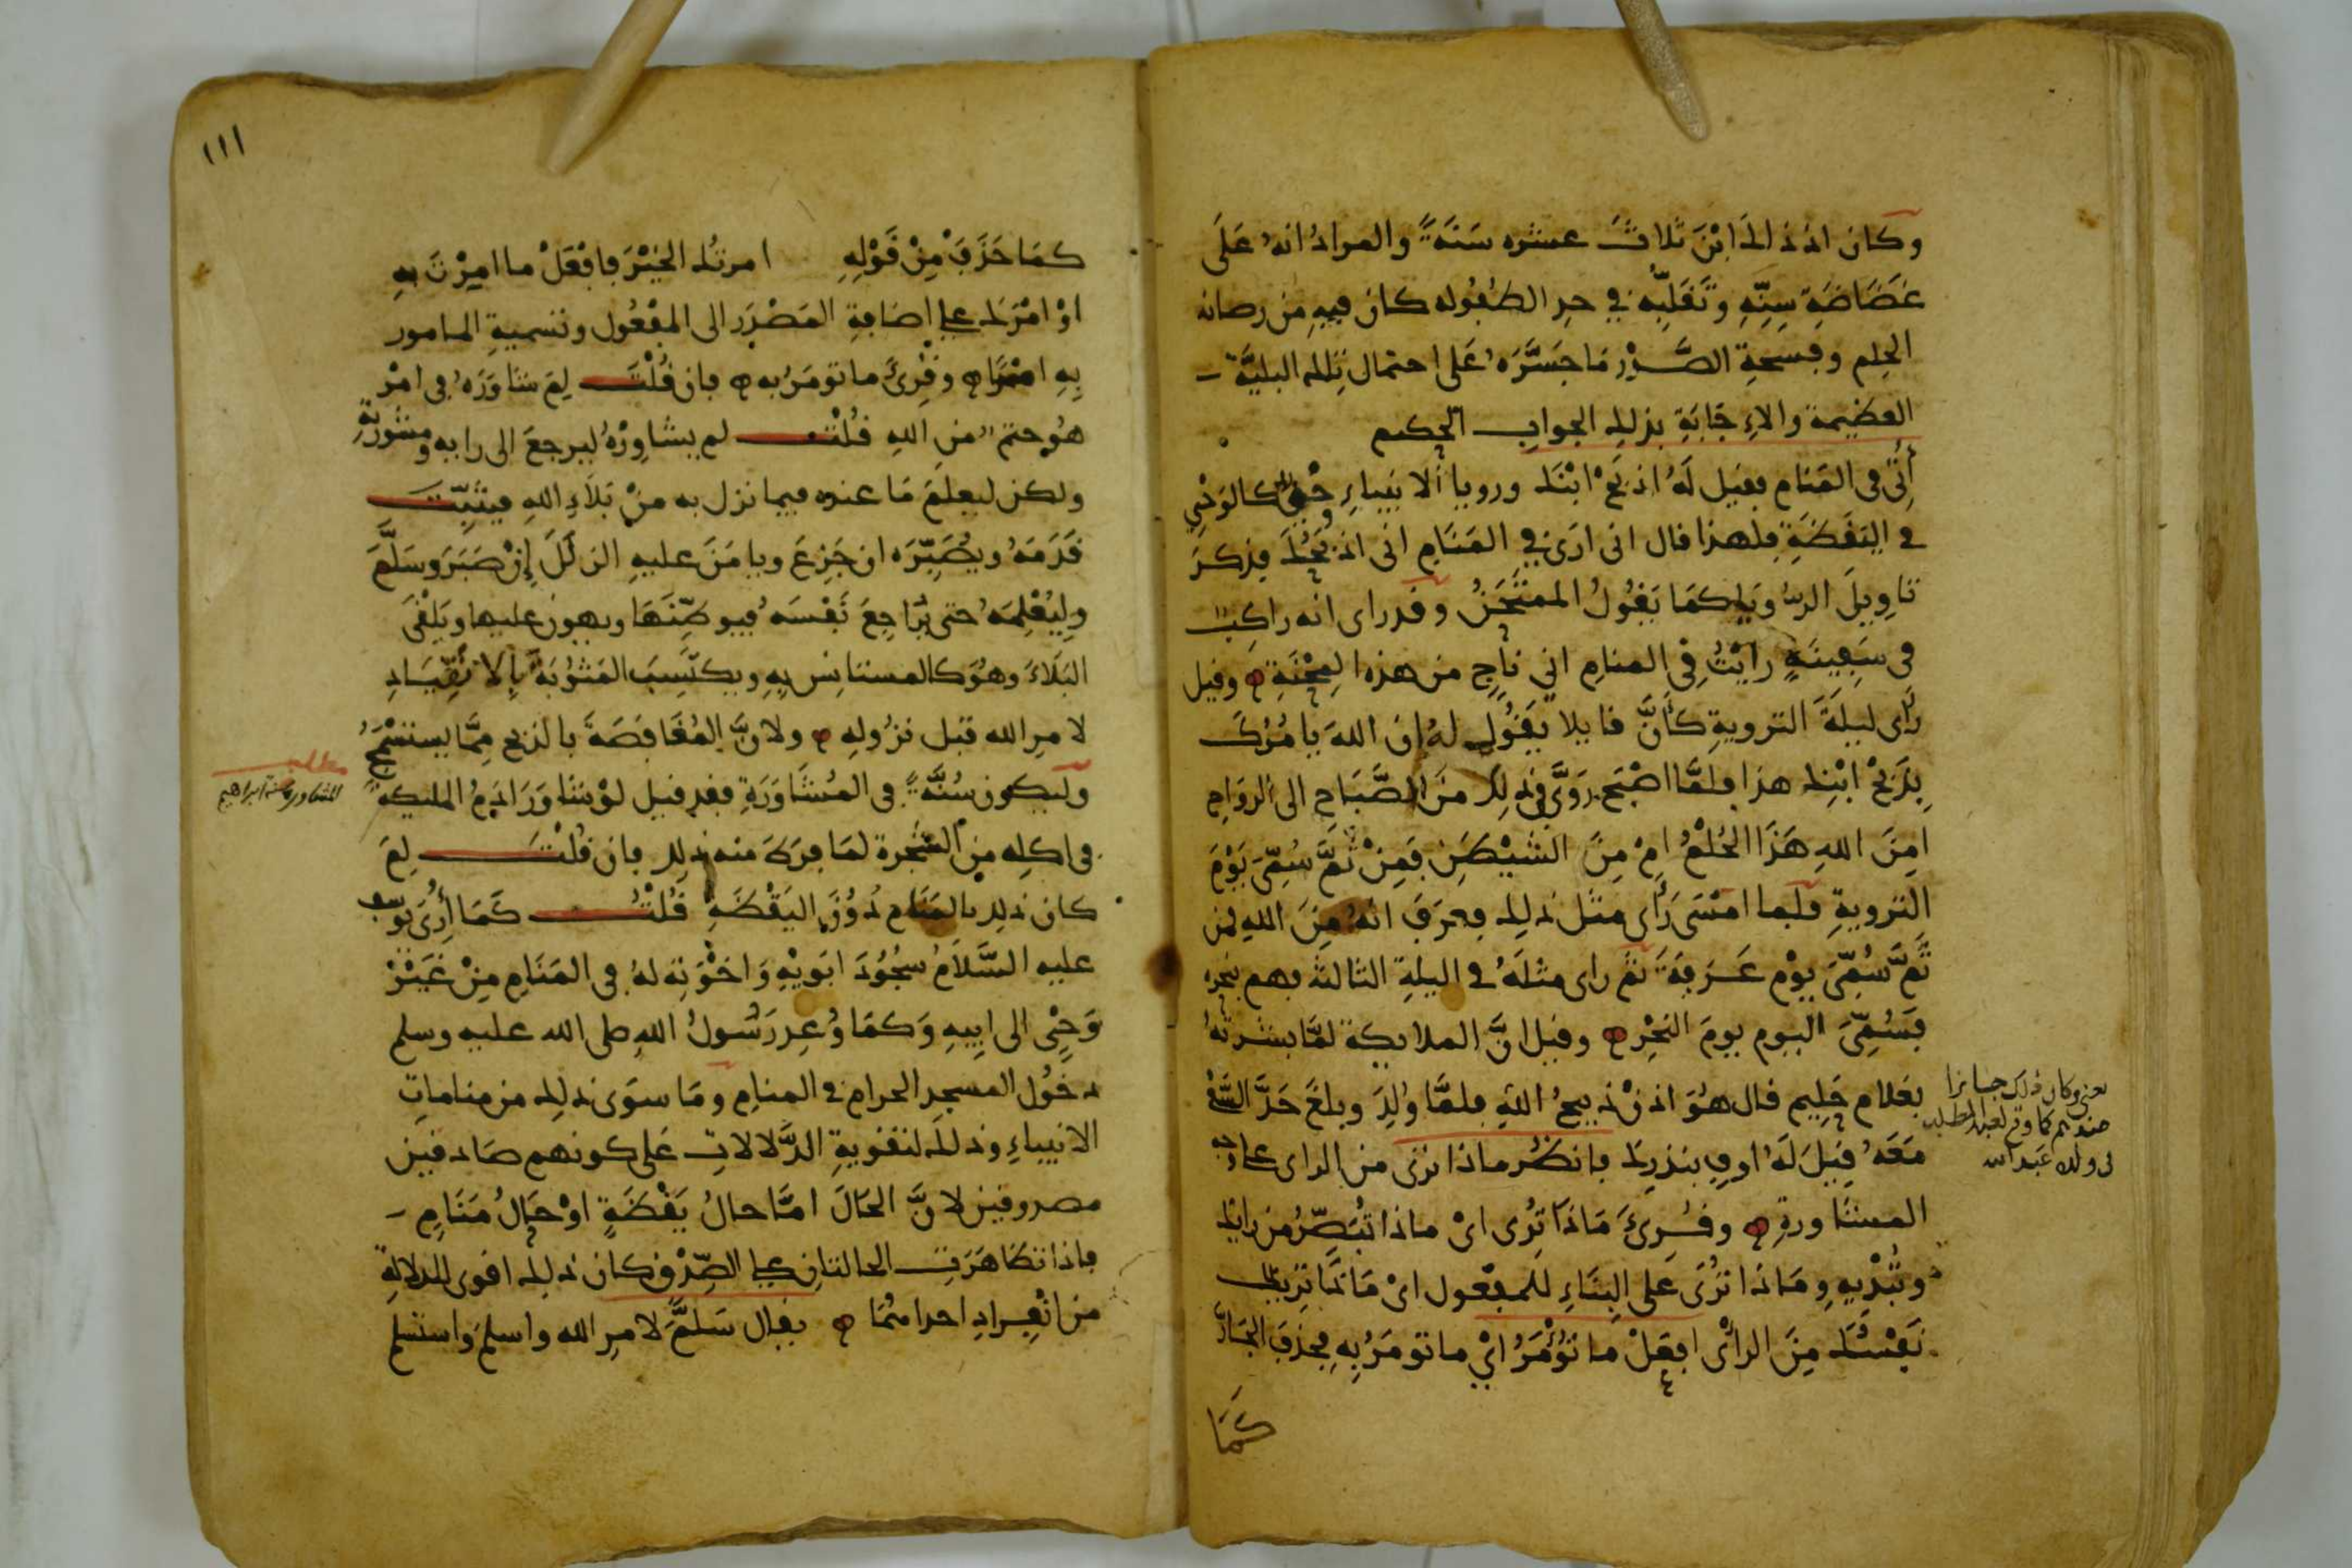 وكان اذ ذالك ابْنَ ثلاثَ عشره سَنَةً والمرادُ انهُ عَلَى
غَضَاضَةِ سِنِّهِ وتَقَلُّبِه في حد الطُفُوله كان فيهِ من رصانه
الحِلم وفسحةِ الصَّدْر مَا جَسَّرَهُ عَلى احتمال تلك البليَّة
العظيمة والاءِجَابَةِ بذلك الجوابِ الحكيم
أُتِيَ في المَنامِ فقيل لَهُ اذبَحْ ابْنَك ورويا الانبياءِ وَحْيٌ كالوَحْيِ
في اليَقَظَةِ فلهذا قال انى ارَى في المَنَامِ انى اذبَحُكَ فذكرَ
تاوِيلَ الرويَا كمَا يَقُولُ الممتَحَنُ وقد راى انه راكِبٌ
فى سَفِينَةٍ رايْتُ فِى المنامِ اني نَاجٍ من هذه المِحْنَةِ ۝ وقيل
رَأى ليلَةَ الترويةِ كَأَنَّ قايلا يَقُولُ لهُ ان اللهَ يامُرُكَ
بِذَبْحِ ابْنِك هذا فلمَّا اصْبَحَ رَوَّى في ذلِك مِنَ الصَّبَاح الى الروَاحِ
امِنَ اللهِ هَذَا الحُلْمُ امْ مِنَ الشيْطَنِ فَمِنْ ثَمَّ سُمِّىَ يَوْمَ
الترويةِ فلما امْسَى رَأى مثل ذلك فعرَفَ انهُ مِنَ اللهِ فمن
ثَمَّ سُمِّىَ يوْم عَرَفَةَ ثم راى مثلَهُ في اليلةِ الثالثة فهم بنحره
فَسُمِّىَ اليوم يومَ النحْرِ ۝ وقيل انَّ الملايكة لمَّا بشرتهُ
بغلام حَلِيم قال هُوَ اذنْ ذبيحُ اللهِ فلمَّا وُلِدَ وبلغَ حَدَّ السَّعْي
مَعَهُ قِيلَ لَهُ اوفِ بنذرِك فانظُر ماذا ترَى من الراى على وجه
المشاورةِ ۝ وقُرِىَ مَاذَا تُرِى اىْ ماذا تُبَصِّرُ من رايك
وتُبْدِيهِ ومَاذا تُرَى عَلى البِنَاءِ للمفعول اىْ مَاذَا تريك
نَفْسُكَ مِنَ الراْى افعَلْ ما تُوْمَرُ ايْ ما تومَرُ بهِ فحذفَ الجَارَّ
كَمَا
يعني وكان ذلك جايزا
عندهم كما وقع لعبد المطلب
فى ولده عبد الله
١١١
كمَا حَذَفَ مِنْ قَوْلِهِ امرتُك الخَيْرَ فافْعَلْ ما امِرْتَ بهِ
اوْ امْرَك على اضافةِ المَصْدَر الى المفْعُول وتسميةِ المامور
بِهِ امْرًا ۝ وقُرِىَ ما تومَرُ به ۝ فان قُلْتَ لِمَ شاوَرَهُ في امْر
هُو حتمٌ من اللهِ قُلْتُ لم يشاوِرْهُ ليرجعَ الى رايه ومشورَتِه
ولكن ليعلمَ مَا عنده فيما نزل به منْ بَلاءِ اللهِ فيثَبِّتَ
قَدَمَهُ ويُصَبِّرَه ان جَزِعَ ويامَنَ عليهِ الزلَلَ إنْ صَبَرَ وسَلَّمَ
ولِيُعْلِمَهُ حتى يُرَاجِعَ نَفْسَهُ فيوطِّنَهَا ويهون عليها ويَلْقَى
البَلاءَ وهُوَ كالمستانِس بِهِ ويكتسِبَ المَثُوْبَةَ بالانقِيَادِ
لامرِ الله قبل نزُولِهِ ۝ ولانَّ المُغَافَصَةَ بالذبح مِمَّا يستسْمَجُ
وليكون سُنَّةً فى المُشَاوَرَةِ فقد قيل لوْ شاوَرَ ادَمُ المليكة
فى اكلِه مِن الشجرة لمَا فرَطَ منه ذلِك فان قُلْتَ لِمَ
كان ذلك بالمَنَامِ دُوْنَ اليَقْظَةِ قُلْتُ كَمَا أُرِىَ يُوسف
عليه السَّلامُ سجُوْدَ ابوَيْهِ وَاخْوَتِه لهُ في المَنَامِ مِنْ غَيْرِ
وَحْىٍ الى ابيهِ وَكمَا وُعِدَ رَسُولُ اللهِ صلى الله عليه وسلم
دخُول المسجِد الحرام فى المنامِ ومَا سوَى ذلك من مناماتِ
الانبياءِ وذلكَ لتقويةِ الدَّلالاتِ عَلى كونهم صَادقين
مصدوقين لانَّ الحَالَ امَّا حالُ يَقْظَةٍ اوْ حَالُ مَنَامٍ
فاذا تظاهَرَتِ الحالتان على الصِّدْقِ كان ذلك اقوى للدلالةِ
من انْفِرادِ احدامُمَا ۝ يقال سَلَّمَ لامرِ الله واسلمَ واستسلم
مطلب
المشاورة سنة ابراهيم